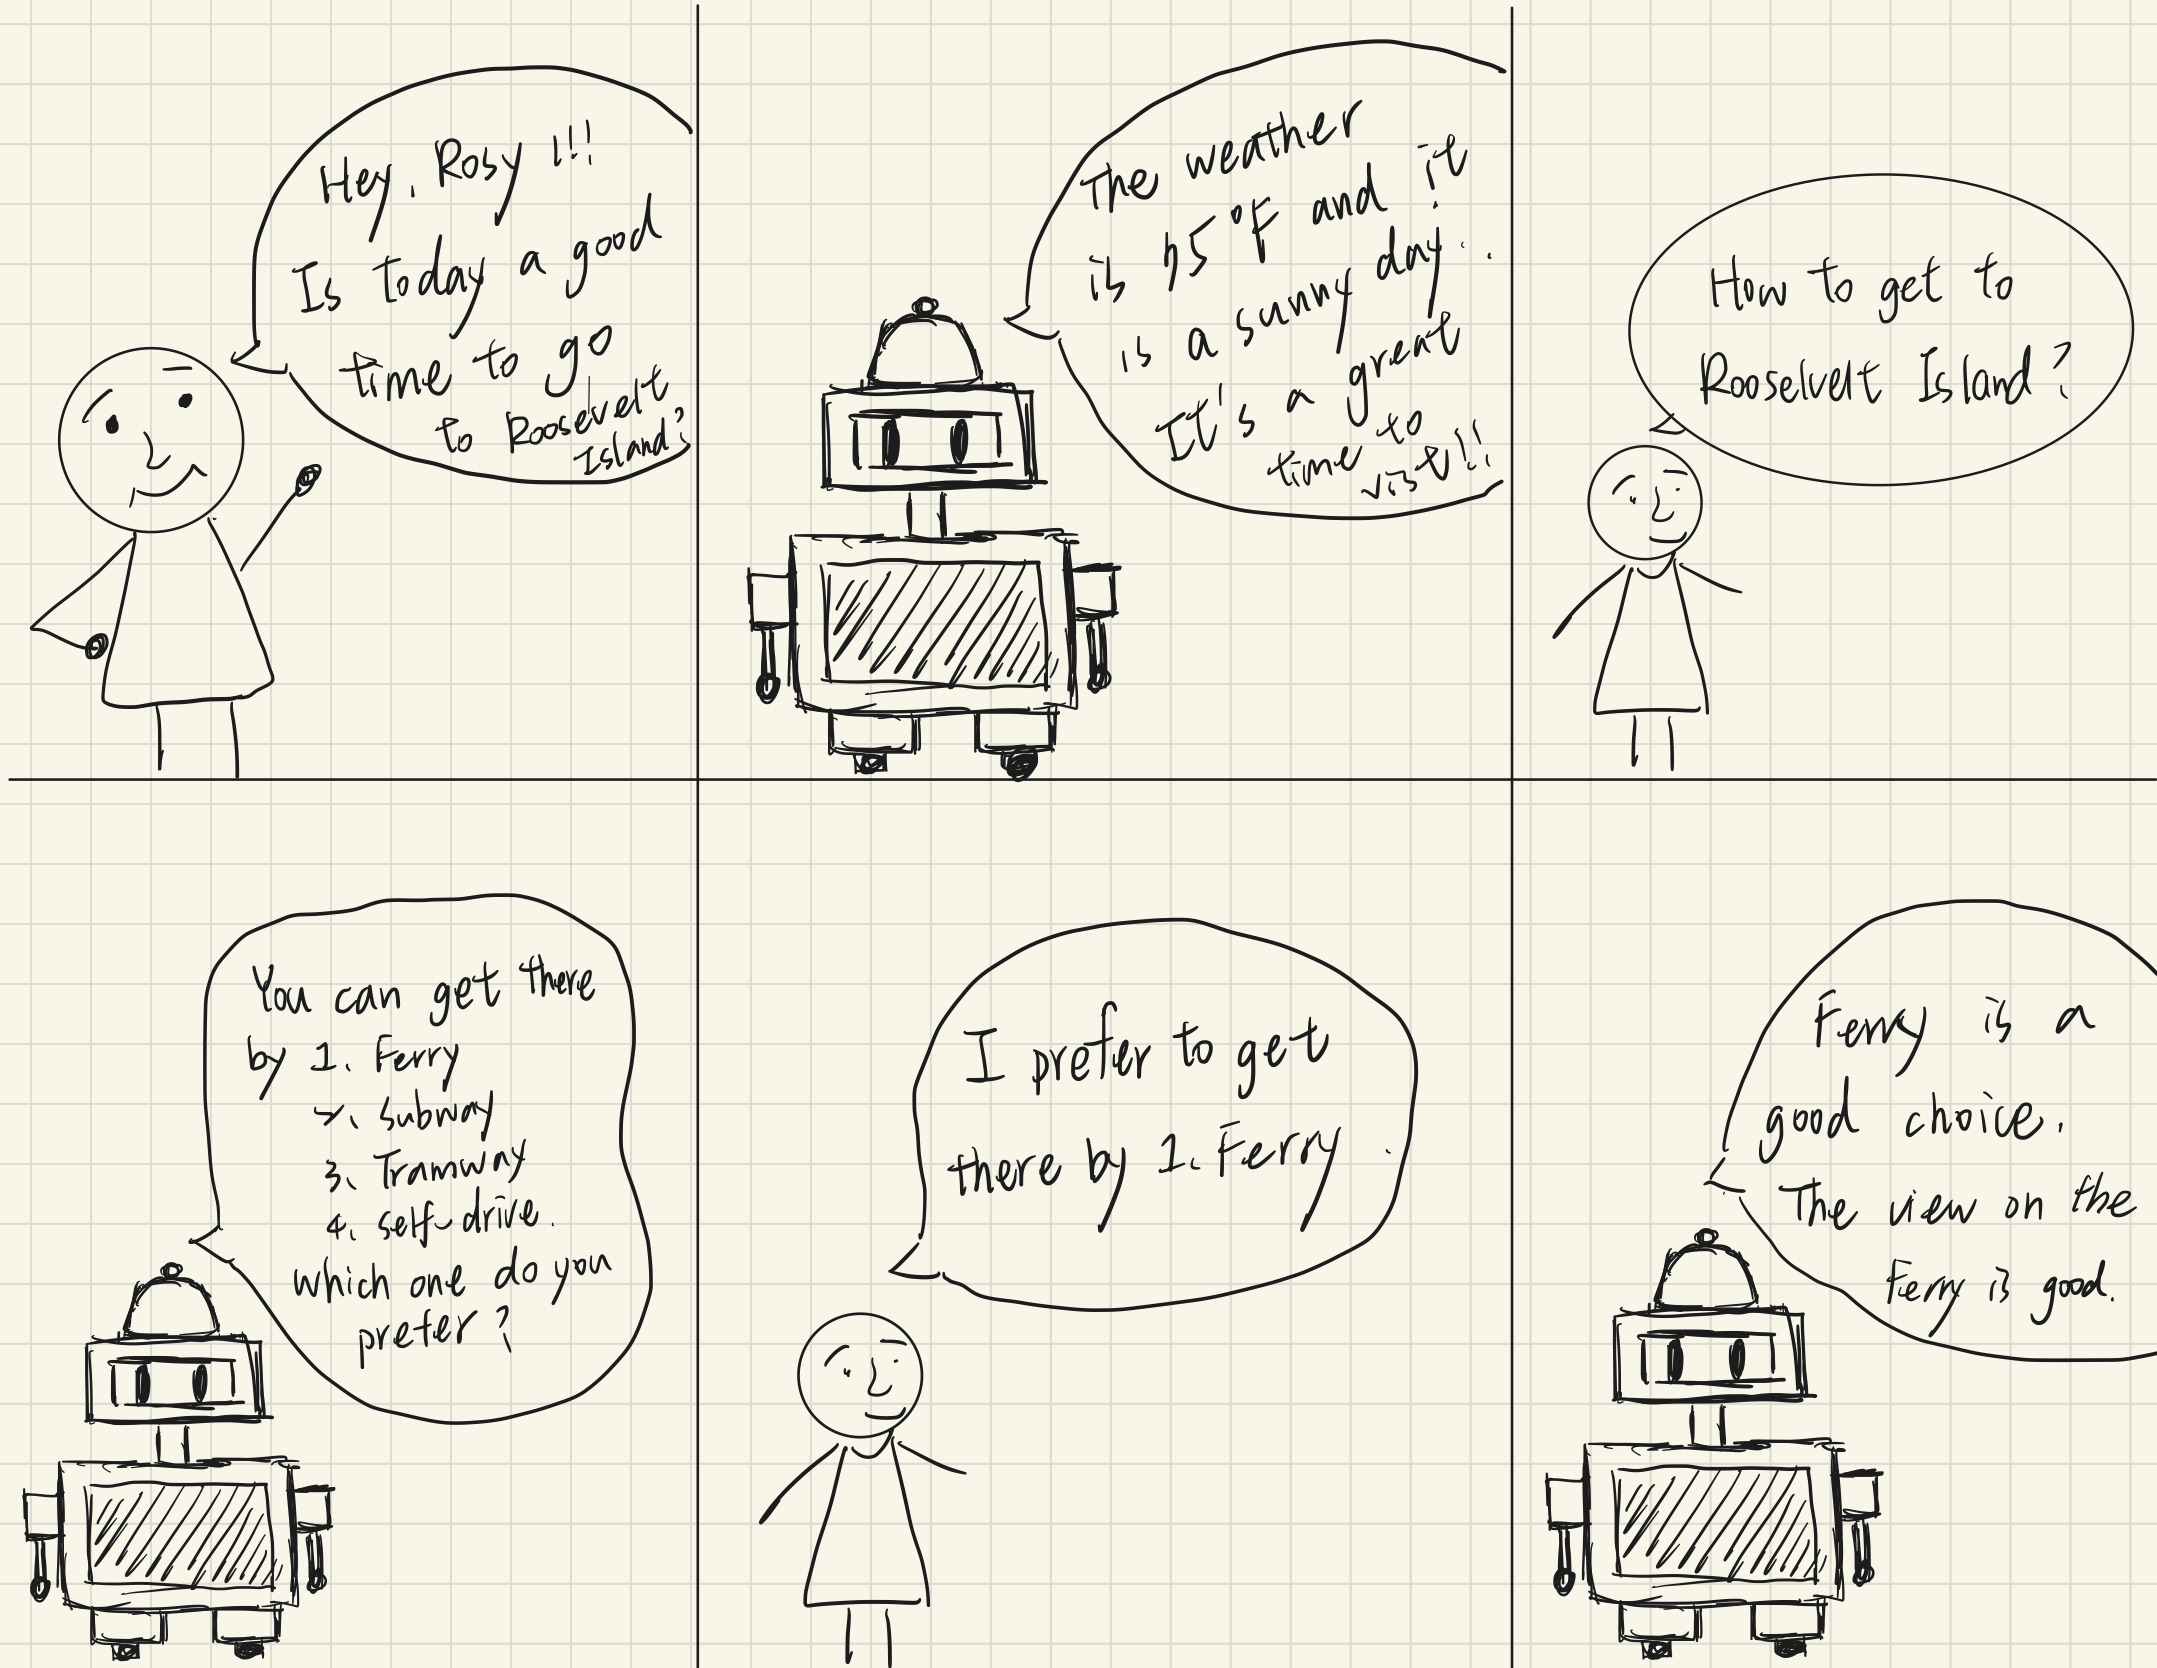 Hey, Rosy !!!
Is today a good
time to go
to Roosevelt
Island?
The weather
is 75°F and it
is a sunny day.
It's a great
time to
visit!!
How to get to
Rooselvelt Island?
You can get there
by 1. Ferry
2. subway
3. Tramway
4. self-drive.
which one do you
prefer?
I prefer to get
there by 1. Ferry
Ferry is a
good choice.
The view on the
Ferry is good.